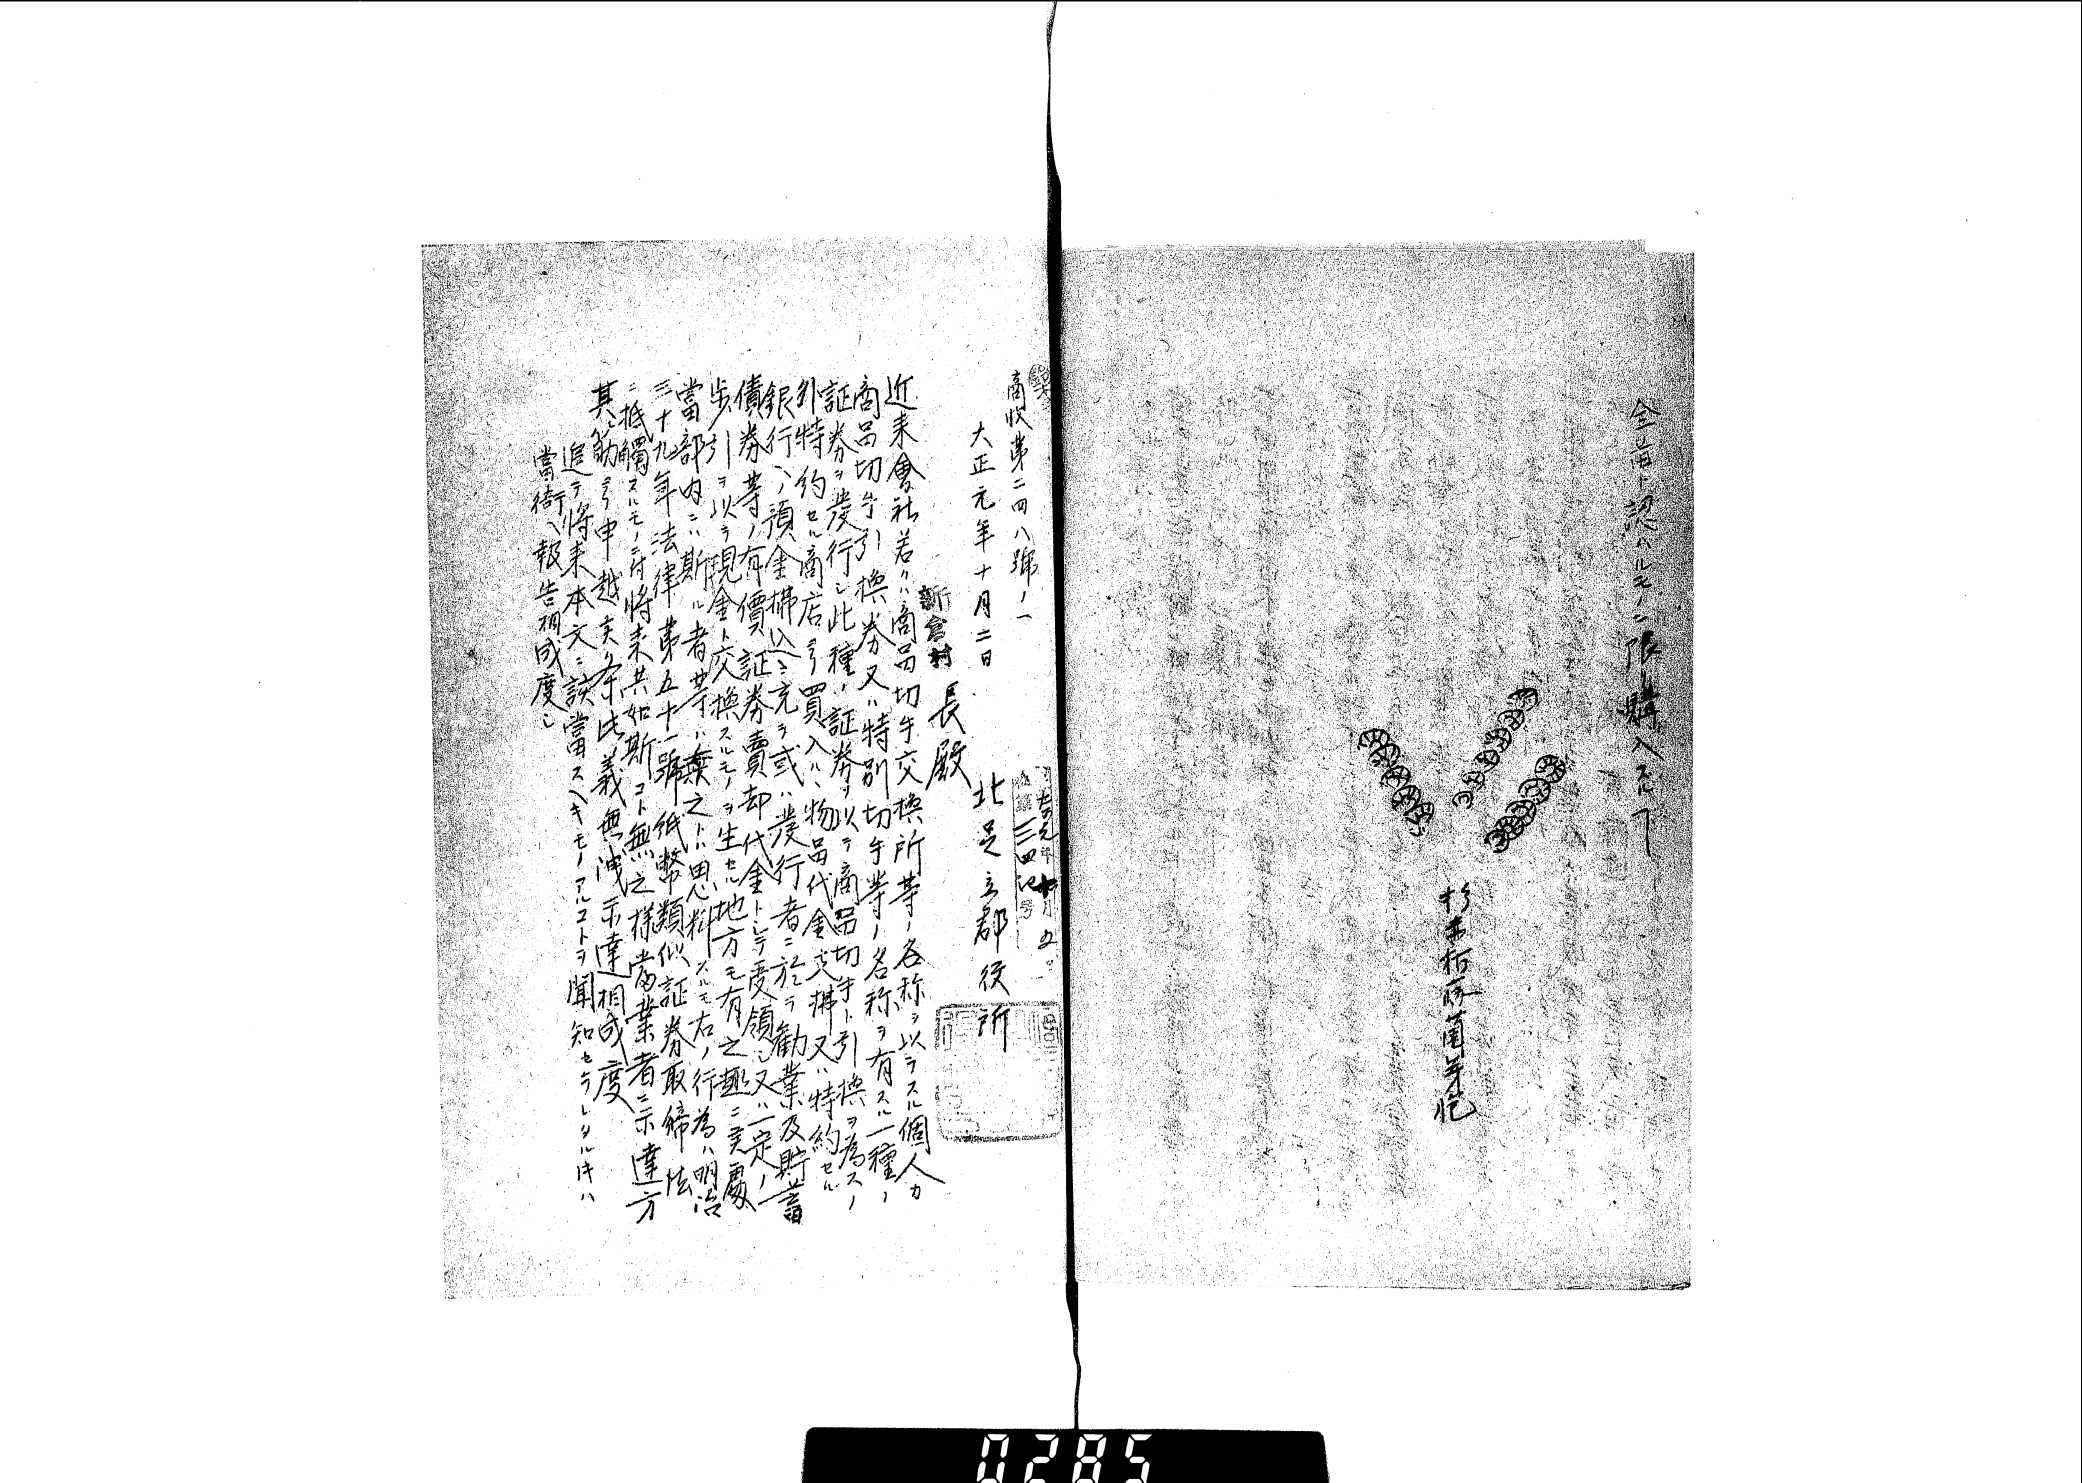 全苗ト認ハルモノニ限リ購入スルコト
商收第二四八號ノ一
大正元年十月二日
北足立郡役所
新倉村長殿
近来會社若クハ商品切手交換所等ノ名称ヲ以テスル個人カ
商品切手引換券又ハ特別切手等ノ名称ヲ有スル一種ノ
証券ヲ發行シ此種ノ証券ヲ以テ商品切手ト引換ヲ為スノ
外特約セル商店ヨリ買入ルヽ物品代金支拂又ハ特約セル
銀行ヘノ預金拂込ニ充テ或ハ發行者ニ於テ勸業及貯蓄
債券等ノ有價証券賣却代金トシテ受領シ又ハ一定ノ
歩引ヲ以テ現金ト交換スルモノヲ生セル地方モ有之趣ニ候處
當部内ニハ斯ル者等ハ無之ト思料スルモ右ノ行為ハ明治
三十九年法律第五十一號紙幣類似証券取締法
ニ抵觸スルモノニ付将来共如斯コト無之様當業者ニ示達方
其筋ヨリ申越候条此義無洩示達相成度
追テ将来本文ニ該當スヘキモノアルコトヲ聞知セラレタルトキハ
當衙ヘ報告相成度シ
0285